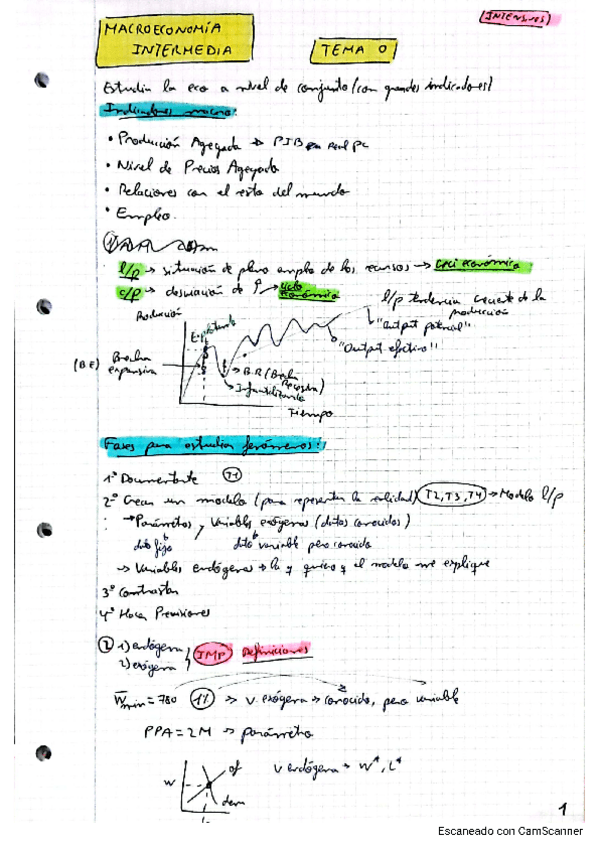 INTENSIVO
MACROECONOMÍA
INTERMEDIA
TEMA 0
Estudia la eco a nivel de conjunto (con grandes indicadores)
Indicadores macro:
• Producción Agregada → PIB real pc
• Nivel de Precios Agregado
• Relaciones con el resto del mundo
• Empleo.
l/p → situación de pleno empleo de los recursos → Crec económico
c/p → desviación de → Ciclo económico
Producción
l/p tendencia creciente de la producción
"Output potencial"
"Output efectivo"
(BE) Brecha expansiva
B.R (Brecha Recesiva)
Infrautilizando
Tiempo
Fases para estudiar fenómenos:
1º Documentarte T1
2º Crear un modelo (para representar la realidad) T2, T3, T4 → Modelo l/p
→ Parámetros y Variables exógenas (datos conocidos)
dato fijo
dato variable pero conocido
→ Variables endógenas → lo q quiero q el modelo me explique
3º Contrastar
4º Hacer Previsiones
2 1) endógena
2) exógena
IMP Definiciones
Wmin = 780 → V exógena → conocido, pero variable
PPA = 2M → parámetro
W
of
dem
V endógena → W*, L*
1
Escaneado con CamScanner